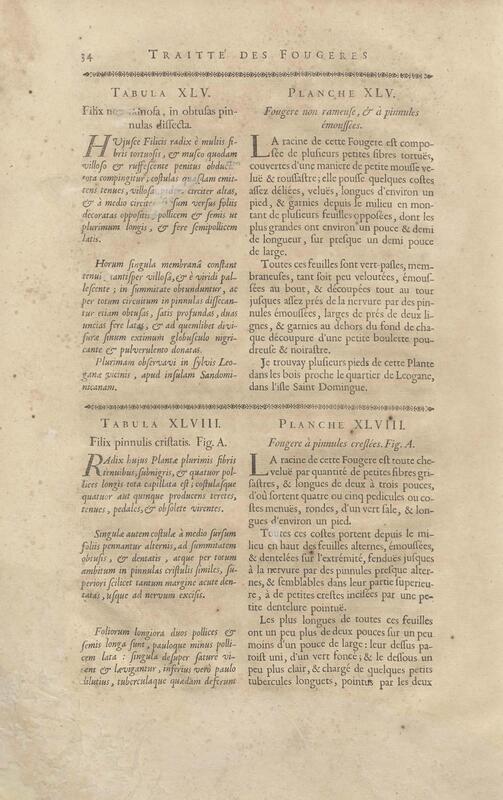 34 TRAITTÉ DES FOUGERES
TABULA XLV.
Filix non ramosa, in obtusas pin-
nulas dissecta.
HUjusce Filicis radix è multis fi-
bris tortuosis, & musco quodam
villoso & ruffescente penitus obductis
tota compingitur; costulas quasdam emit-
tens tenues, villosas, circiter altas,
& à medio circiter sursum versus foliis
decoratas oppositis, pollicem & semis ut
plurimum longis, & fere semipollicem
latis.
Horum singula membranâ constant
tenui tantisper villosa, & è viridi pal-
lescente; in summitate obtunduntur, ac
per totum circuitum in pinnulas dissecan-
tur etiam obtusas, satis profundas, duas
uncias fere latas, & ad quemlibet divi-
suræ sinum extimum globusculo nigri-
cante & pulverulento donatas.
Plurimam observavi in sylvis Leo-
ganæ vicinis, apud insulam Sandomi-
nicanam.
PLANCHE XLV.
Fougere non rameuse, & à pinnules
émoussées.
LA racine de cette Fougere est compo-
sée de plusieurs petites fibres tortuës,
couvertes d'une maniere de petite mousse ve-
luë & roussastre; elle pousse quelques costes
assez déliées, veluës, longues d'environ un
pied, & garnies depuis le milieu en mon-
tant de plusieurs feuilles opposées, dont les
plus grandes ont environ un pouce & demi
de longueur, sur presque un demi pouce
de large.
Toutes ces feuilles sont vert-pasles, mem-
braneuses, tant soit peu veloutées, émous-
sées au bout, & découpées tout au tour
jusques assez prés de la nervure par des pin-
nules émoussées, larges de prés de deux li-
gnes, & garnies au dehors du fond de cha-
que découpure d'une petite boulette pou-
dreuse & noirastre.
Je trouvay plusieurs pieds de cette Plante
dans les bois proche le quartier de Leogane,
dans l'isle Saint Domingue.
TABULA XLVIII.
Filix pinnulis cristatis. Fig. A.
RAdix hujus Plantæ plurimis fibris
tenuibus, subnigris, & quatuor pol-
lices longis tota capillata est; costulasque
quatuor aut quinque producens teretes,
tenues, pedales, & obsolete virentes.
Singulæ autem costulæ à medio sursum
foliis pennantur alternis, ad summitatem
obtusis, & dentatis, atque per totum
ambitum in pinnulas cristulis similes, su-
periori scilicet tantum margine acute den-
tatas, usque ad nervum excisis.
Foliorum longiora duos pollices &
semis longa sunt, pauloque minus polli-
cem lata: singula desuper sature vi-
rent & lævigantur; inferius verò paulo
dilutius, tuberculaque quædam deferunt
PLANCHE XLVIII.
Fougere à pinnules crestées. Fig. A.
LA racine de cette Fougere est toute che-
veluë par quantité de petites fibres gri-
sastres, & longues de deux à trois pouces,
d'où sortent quatre ou cinq pedicules ou co-
stes menuës, rondes, d'un vert sale, & lon-
gues d'environ un pied.
Toutes ces costes portent depuis le mi-
lieu en haut des feuilles alternes, émoussées,
& dentelées sur l'extrémité, fenduës jusques
à la nervure par des pinnules presque alter-
nes, & semblables dans leur partie superieu-
re, à de petites crestes incisées par une pe-
tite dentelure pointuë.
Les plus longues de toutes ces feuilles
ont un peu plus de deux pouces sur un peu
moins d'un pouce de large: leur dessus pa-
roist uni, d'un vert foncé; & le dessous un
peu plus clair, & chargé de quelques petits
tubercules longuets, pointus par les deux